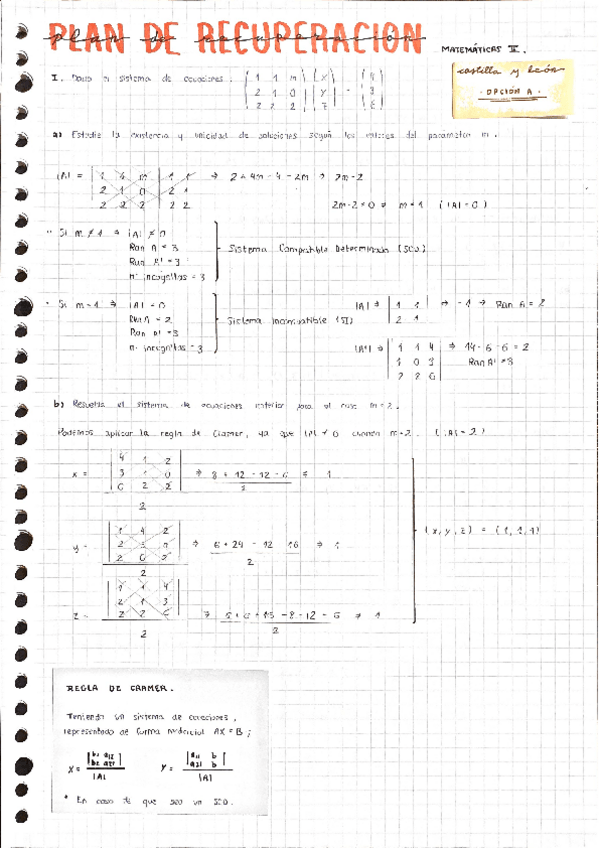 PLAN DE RECUPERACIÓN
plan de recuperación
MATEMÁTICAS II.
castilla y león
· OPCIÓN A ·
I. Dado el sistema de ecuaciones: (1 1 m / 2 1 0 / 2 2 2) (x / y / z) = (4 / 3 / 6)
a) Estudie la existencia y unicidad de soluciones según los valores del parámetro m.
|A| = ⇒ 2 + 4m - 4 - 2m ⇒ 2m - 2
2m - 2 = 0 ⇒ m = 1 (|A| = 0)
Si m ≠ 1 ⇒ |A| ≠ 0
Ran A = 3
Ran A' = 3
nº incognitas = 3
Sistema Compatible Determinado (SCD)
Si m = 1 ⇒ |A| = 0
Ran A = 2
Ran A' = 3
nº incognitas = 3
Sistema Incompatible (SI)
|A| ⇒ |1 1 / 2 1| ⇒ -1 ⇒ Ran A = 2
⇒ 14 - 6 - 6 = 2
Ran A' = 3
b) Resuelva el sistema de ecuaciones anterior para el caso m = 2.
Podemos aplicar la regla de Cramer, ya que |A| ≠ 0 cuando m = 2. (|A| = 2)
x = |4 1 2 / 3 1 0 / 6 2 2| / 2 ⇒ 8 + 12 - 12 - 6 / 2 = 1
y = / 2 ⇒ 6 + 24 - 12 - 16 / 2 ⇒ 1
z = |1 1 4 / 2 1 3 / 2 2 6| / 2 ⇒ 1
(x, y, z) = (1, 1, 1)
REGLA DE CRAMER.
Teniendo un sistema de ecuaciones,
representado de forma matricial AX = B;
x = / |A| y = / |A|
* En caso de que sea un SCD.